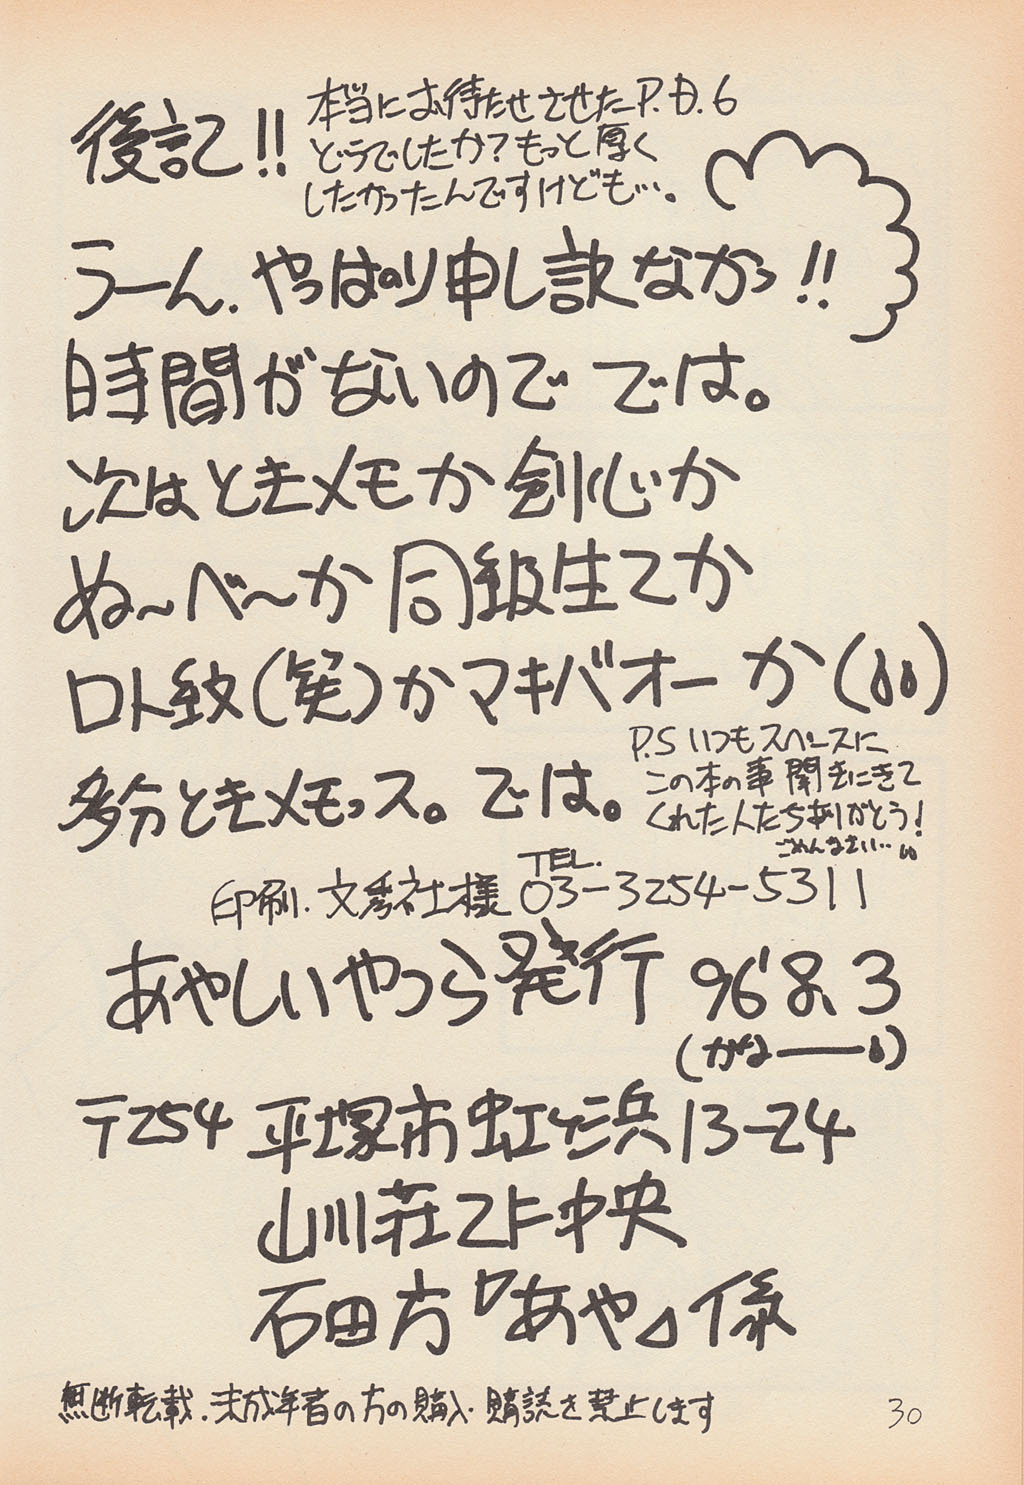 後記!!
本当にお待たせさせたP.D.6
どうでしたか?もっと厚く
したかったんですけども…。
うーん、やっぱり申し訳なかっ!!
時間がないので では。
次はときメモか剣心か
ぬ〜べ〜か同級生てか
ロト紋(笑)かマキバオーか
多分ときメモっス。では。
P.S いつもスペースに
この本の事聞きにきて
くれた人たちありがとう!
ごめんなさい…
印刷.文秀社様 TEL.03-3254-5311
あやしいやつら発行 96'8、3
(かなー)
〒254 平塚市虹ヶ浜13-24
山川荘2F中央
石田方『あや』係
無断転載.未成年者の方の購入.購読を禁止します
30